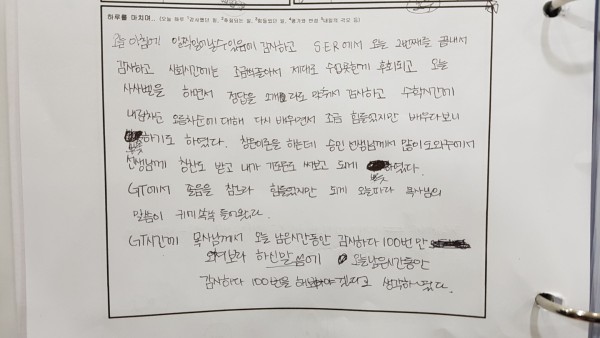 하루를 마치며.. (오늘 하루 ¹감사했던 일, ²후회되는 일, ³힘들었던 일, ⁴평가와 반성 ⁵내일의 각오 등)
오늘 아침에 일찍일어날수있음에 감사하고 SER에서 오늘 2번째줄 끝내서
감사하고 사회시간에는 조금씩졸아서 제대로 수업못한게 후회되고 오늘
하면서 정답을 2개 라도 맞춰서 감사하고 수학시간에
내림차순 오름차순에 대해 다시 배우면서 조금 힘들었지만 배우다보니
뿌듯하기도 하였다. 하는데 승인 선생님께서 많이도와주에서
선생님께 칭찬도 받고 내가 써보고 되게 뿌듯하였다.
GT에서 졸음을 참느라 힘들었지만 되게 오늘따라 목사님의
말씀이 귀에 쏙쏙 들어왔다.
GT시간에 목사님께서 오늘 남은시간동안 감사하다 100번 만
하신말씀에 오늘남은시간동안
감사하다 100번을 해보아야 겠다고 생각하였다.